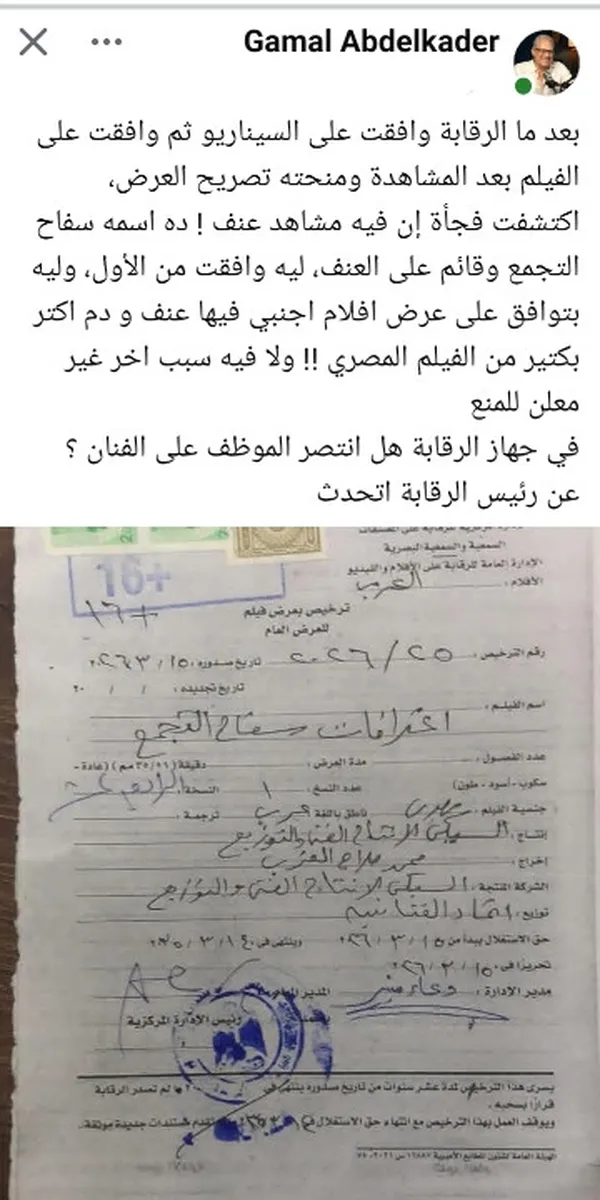 Gamal Abdelkader
بعد ما الرقابة وافقت على السيناريو ثم وافقت على
الفيلم بعد المشاهدة ومنحته تصريح العرض،
اكتشفت فجأة إن فيه مشاهد عنف ! ده اسمه سفاح
التجمع وقائم على العنف، ليه وافقت من الأول، وليه
بتوافق على عرض افلام اجنبي فيها عنف و دم اكتر
بكتير من الفيلم المصري !! ولا فيه سبب اخر غير
معلن للمنع
في جهاز الرقابة هل انتصر الموظف على الفنان ؟
عن رئيس الرقابة اتحدث
السمعية والسمعية البصرية
الإدارة العامة للرقابة على الأفلام والفيديو
16+
الأفلام : العربية
+١٦
ترخيص بعرض فيلم
للعرض العام
رقم الترخيص : ٢٠٢٦/٢٥ تاريخ صدوره : ١٥ / ٣ / ٢٠٢٦
تاريخ تجديده : / / ٢٠
اسم الفيلم : اعترافات سفاح التجمع
عدد الفصول : مدة العرض : دقيقة (٣٥/١٦ مم) (عادة -
سكوب - أسود - ملون) عدد النسخ : ١ النسخة :
جنسية الفيلم : مصرى ناطق باللغة عربى ترجمة :
إنتاج : السبكى للإنتاج الفنى والتوزيع
إخراج : محمد صلاح العزب
الشركة المنتجة : السبكى للإنتاج الفنى والتوزيع
توزيع :
حق الاستغلال يبدأ من ١٥ / ٣ / ٢٠٢٦ وينتهى فى ١٤ / ٣ /
تحريرا فى ١٥ / ٣ / ٢٠٢٦
مدير الإدارة : دعاء منير المدير العام
يعتمد رئيس الإدارة المركزية
يسرى هذا الترخيص لمدة عشر سنوات من تاريخ صدوره ينتهى فى ما لم تصدر الرقابة
قرارًا بسحبه .
ويوقف العمل بهذا الترخيص مع انتهاء حق الاستغلال فى تقدم مستندات جديدة موثقة .
الهيئة العامة لشئون المطابع الأميرية